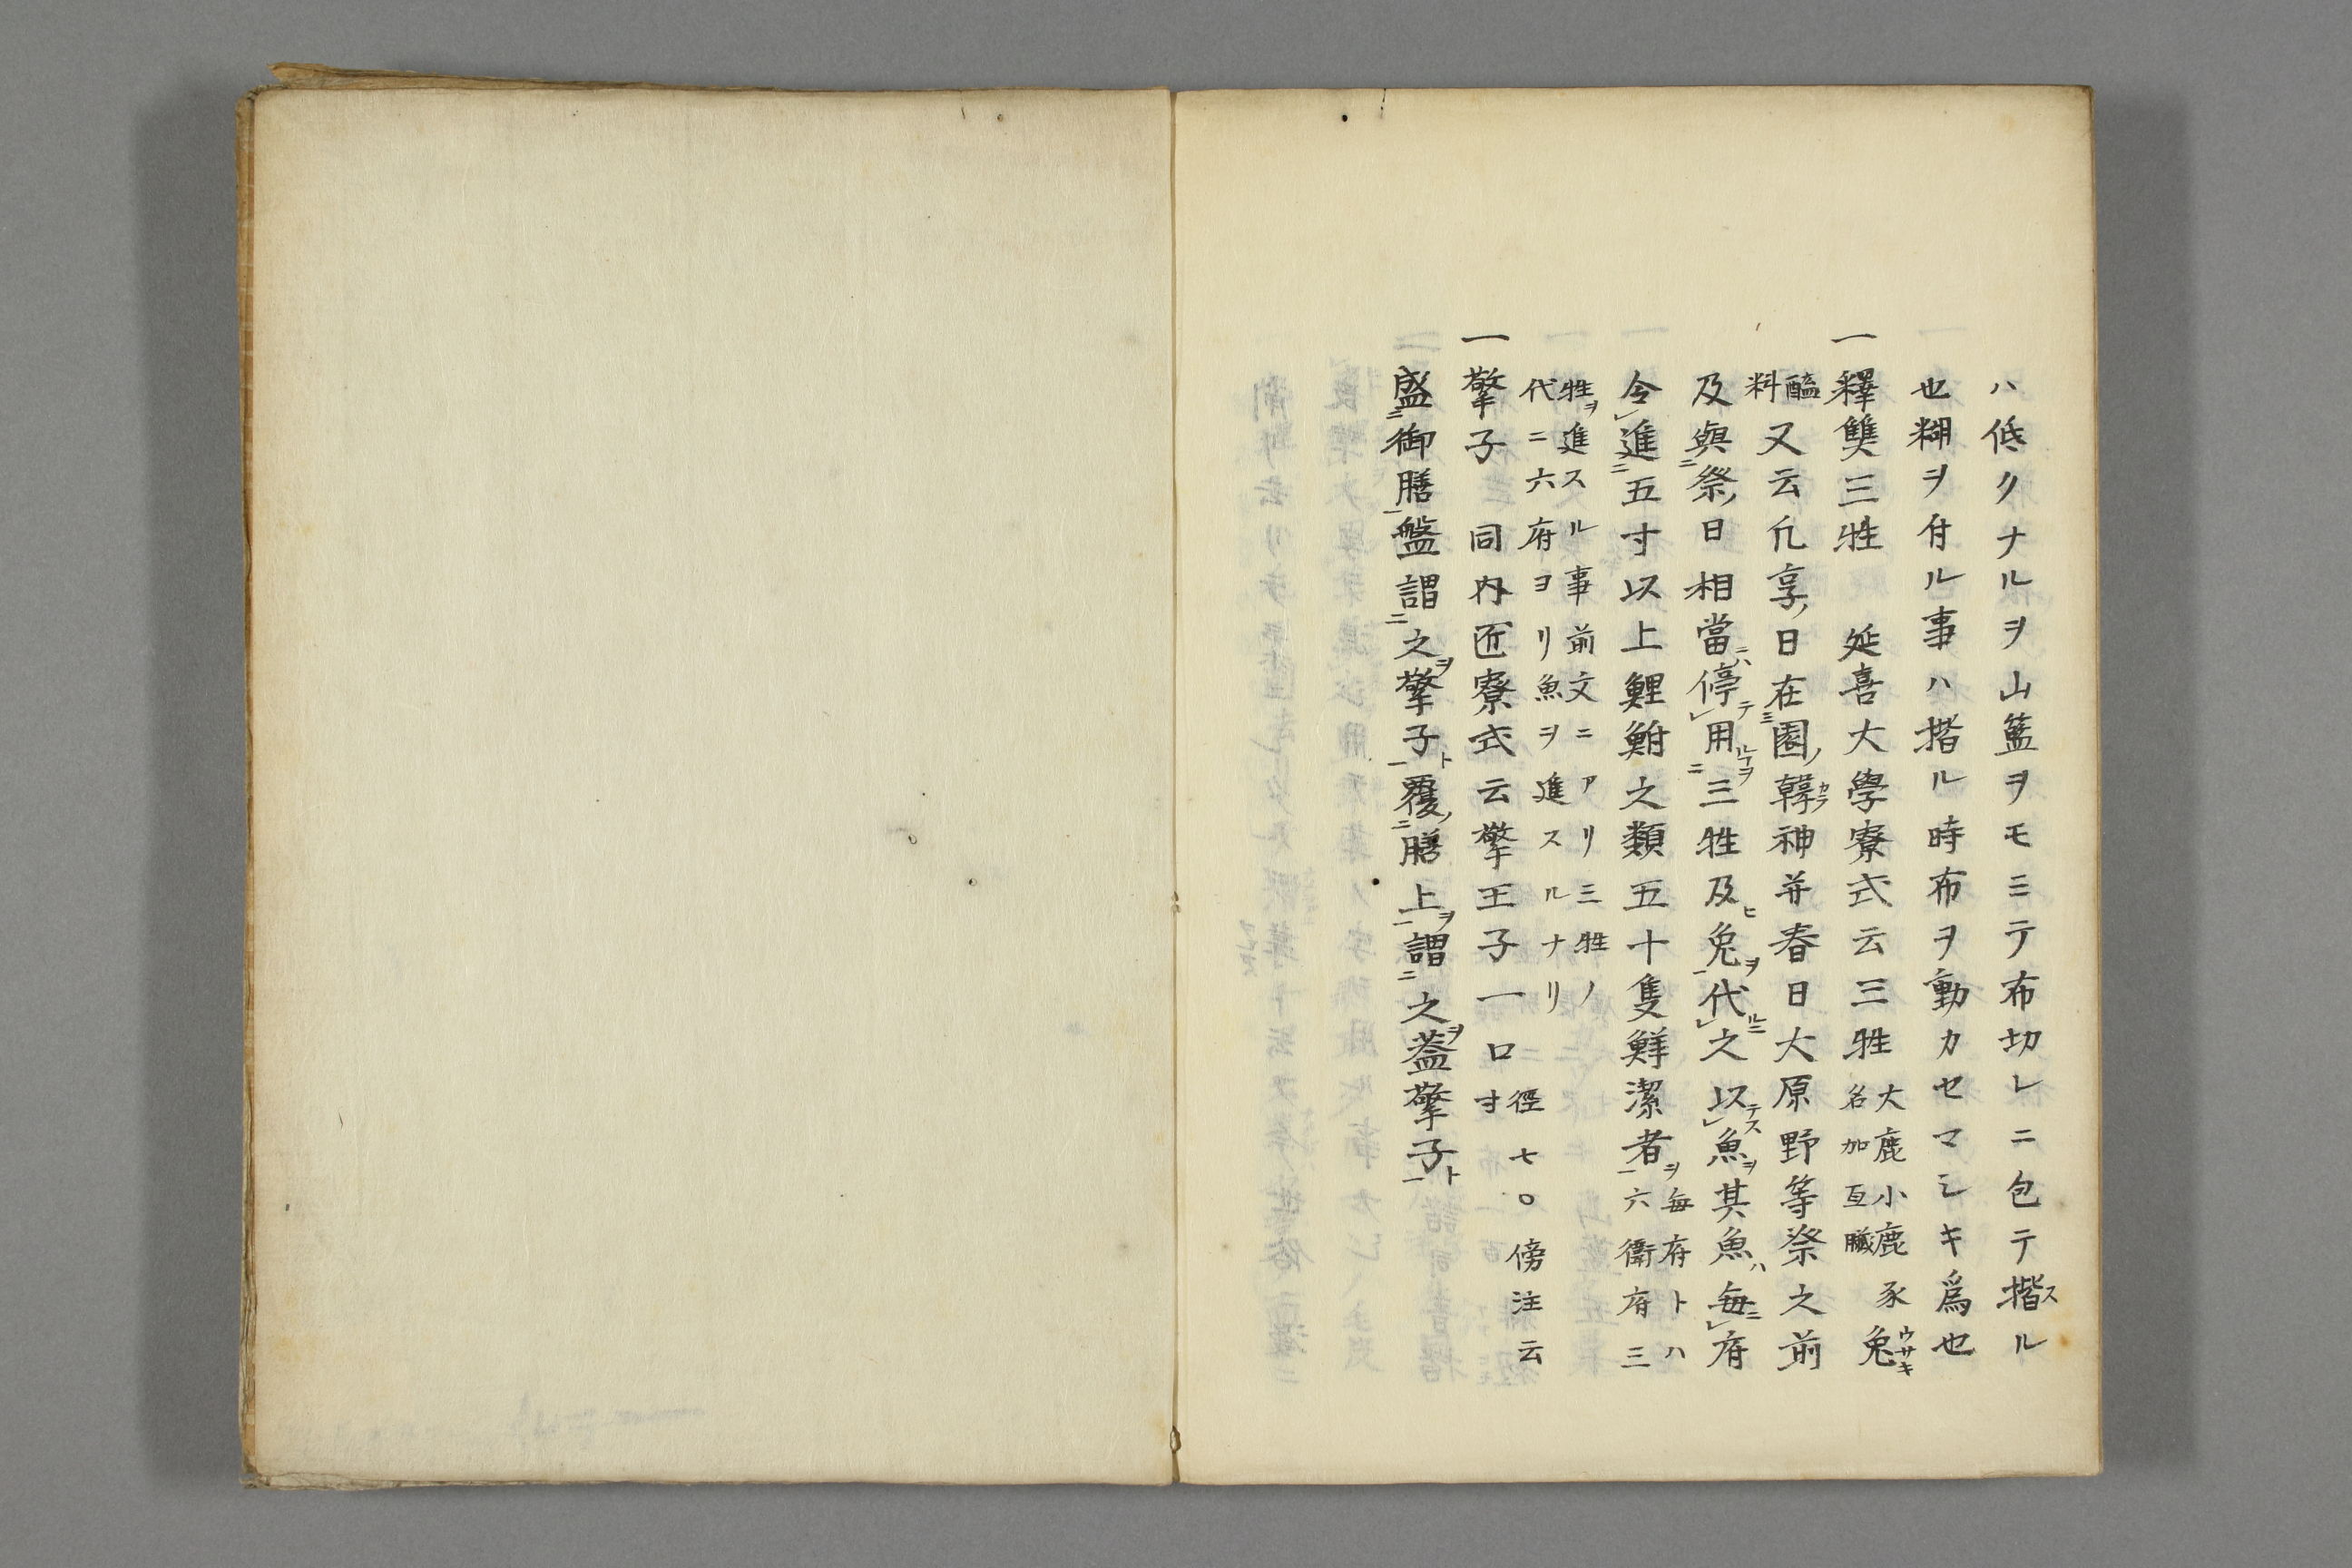 ハ低クナルヲ山藍ヲモミテ布切レニ包テ揩スル
也糊ヲ付ル事ハ揩ル時布ヲ動カセマシキ爲也
一釋奠三牲　延喜大學寮式云三牲大鹿小鹿豕兎ウサキ
名加五臓
醢
料又云凢享ノ日在園ノ韓カラ神并春日大原野等祭之前
及與祭ノ日相當ニハ停テ用ルヿヲ三牲及ヒ兎ヲ代ルニ之以テス魚ヲ其魚ハ毎ニ府
令進五寸以上鯉鮒之類五十隻鮮潔者ヲ毎府トハ
六衞府三
牲ヲ進スル事前文ニアリ三牲ノ
代ニ六府ヨリ魚ヲ進スルナリ
一擎子　同内匠寮式云擎王子一口徑七
寸○傍注云
盛御膳盤謂之ヲ擎子ト覆ノ膳上ヲ謂之ヲ蓋擎子ト